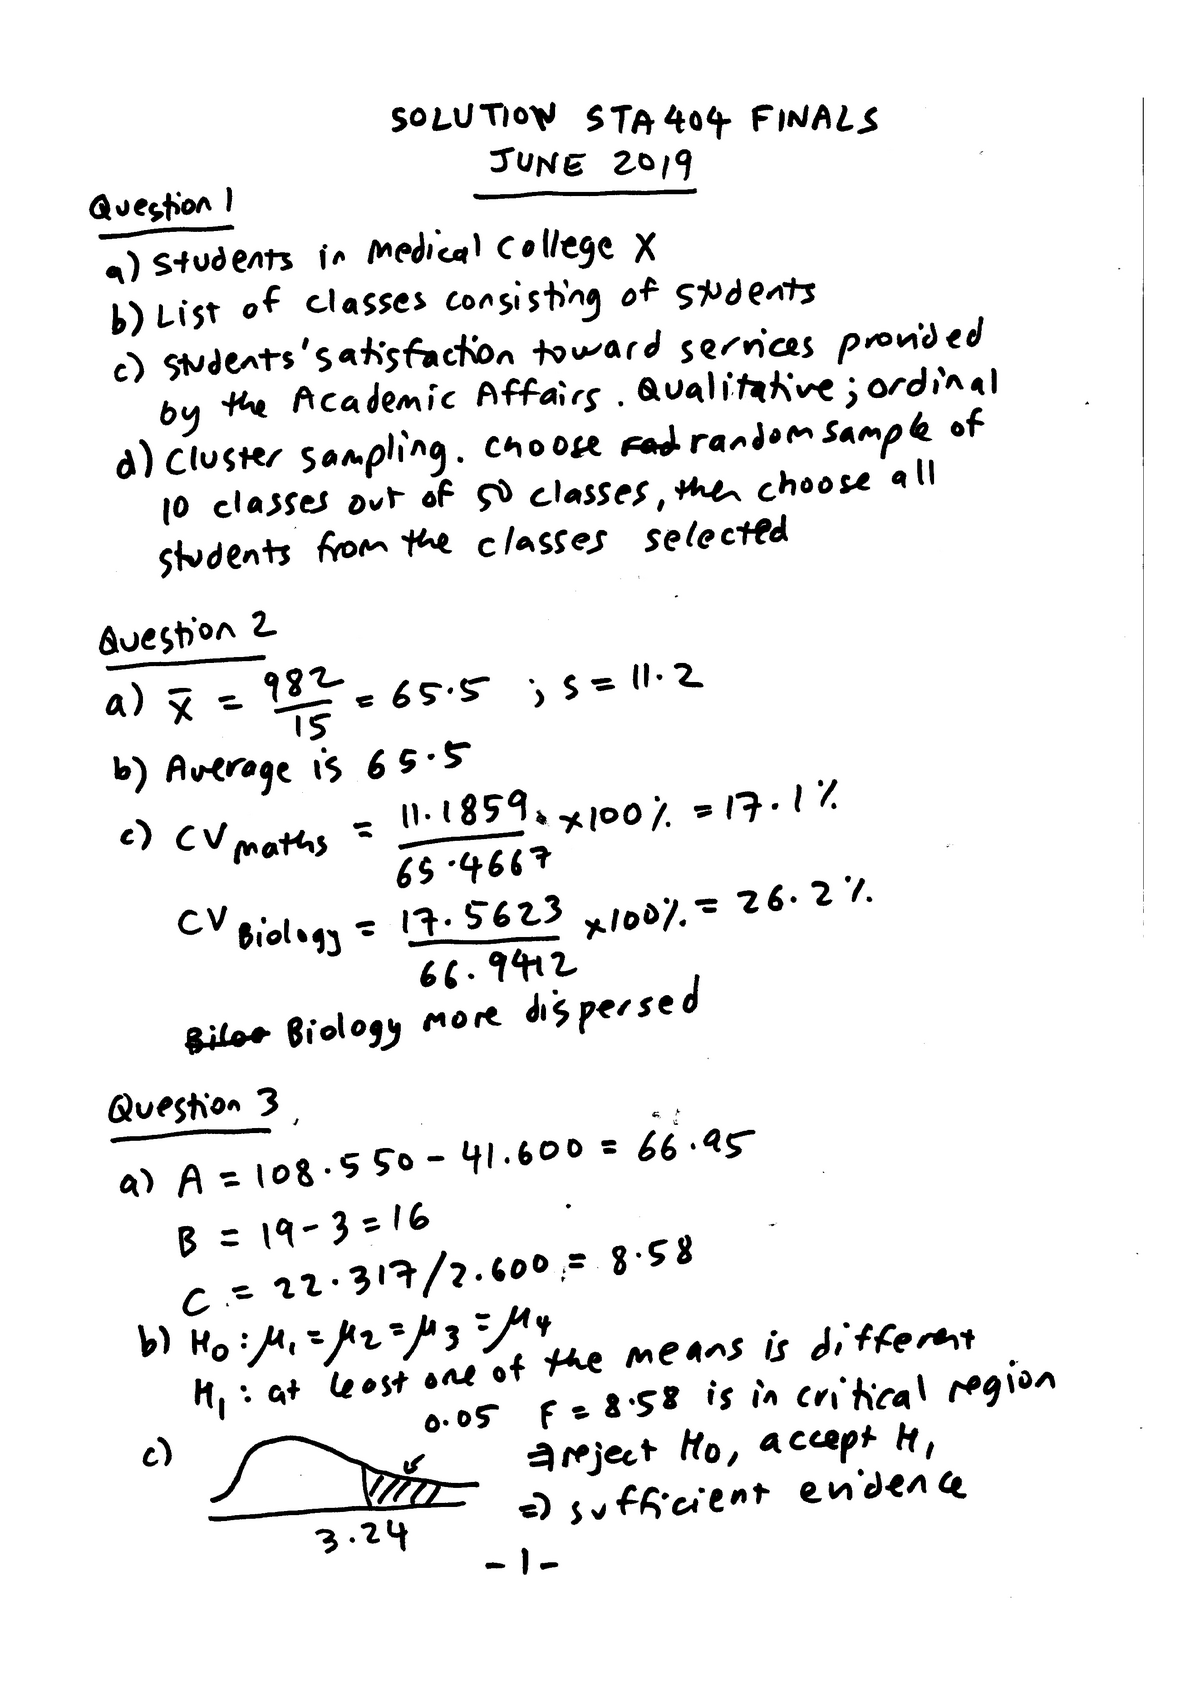 SOLUTION STA404 FINALS
JUNE 2019
Question 1
a) Students in Medical College X
b) List of classes consisting of students
c) Students' satisfaction toward services provided
by the Academic Affairs. Qualitative; ordinal
d) Cluster sampling. Choose random sample of
10 classes out of 50 classes, then choose all
students from the classes selected
Question 2
a) x̄ = 982/15 = 65.5 ; s = 11.2
b) Average is 65.5
c) CV maths = 11.1859/65.4667 ×100% = 17.1%
CV Biology = 17.5623/66.9412 ×100% = 26.2%
Biology more dispersed
Question 3
a) A = 108.550 - 41.600 = 66.95
B = 19 - 3 = 16
C = 22.317/2.600 = 8.58
b) H0 : μ1 = μ2 = μ3 = μ4
H1 : at least one of the means is different
c) 0.05 F = 8.58 is in critical region
⇒ reject H0, accept H1
⇒ sufficient evidence
3.24
-1-